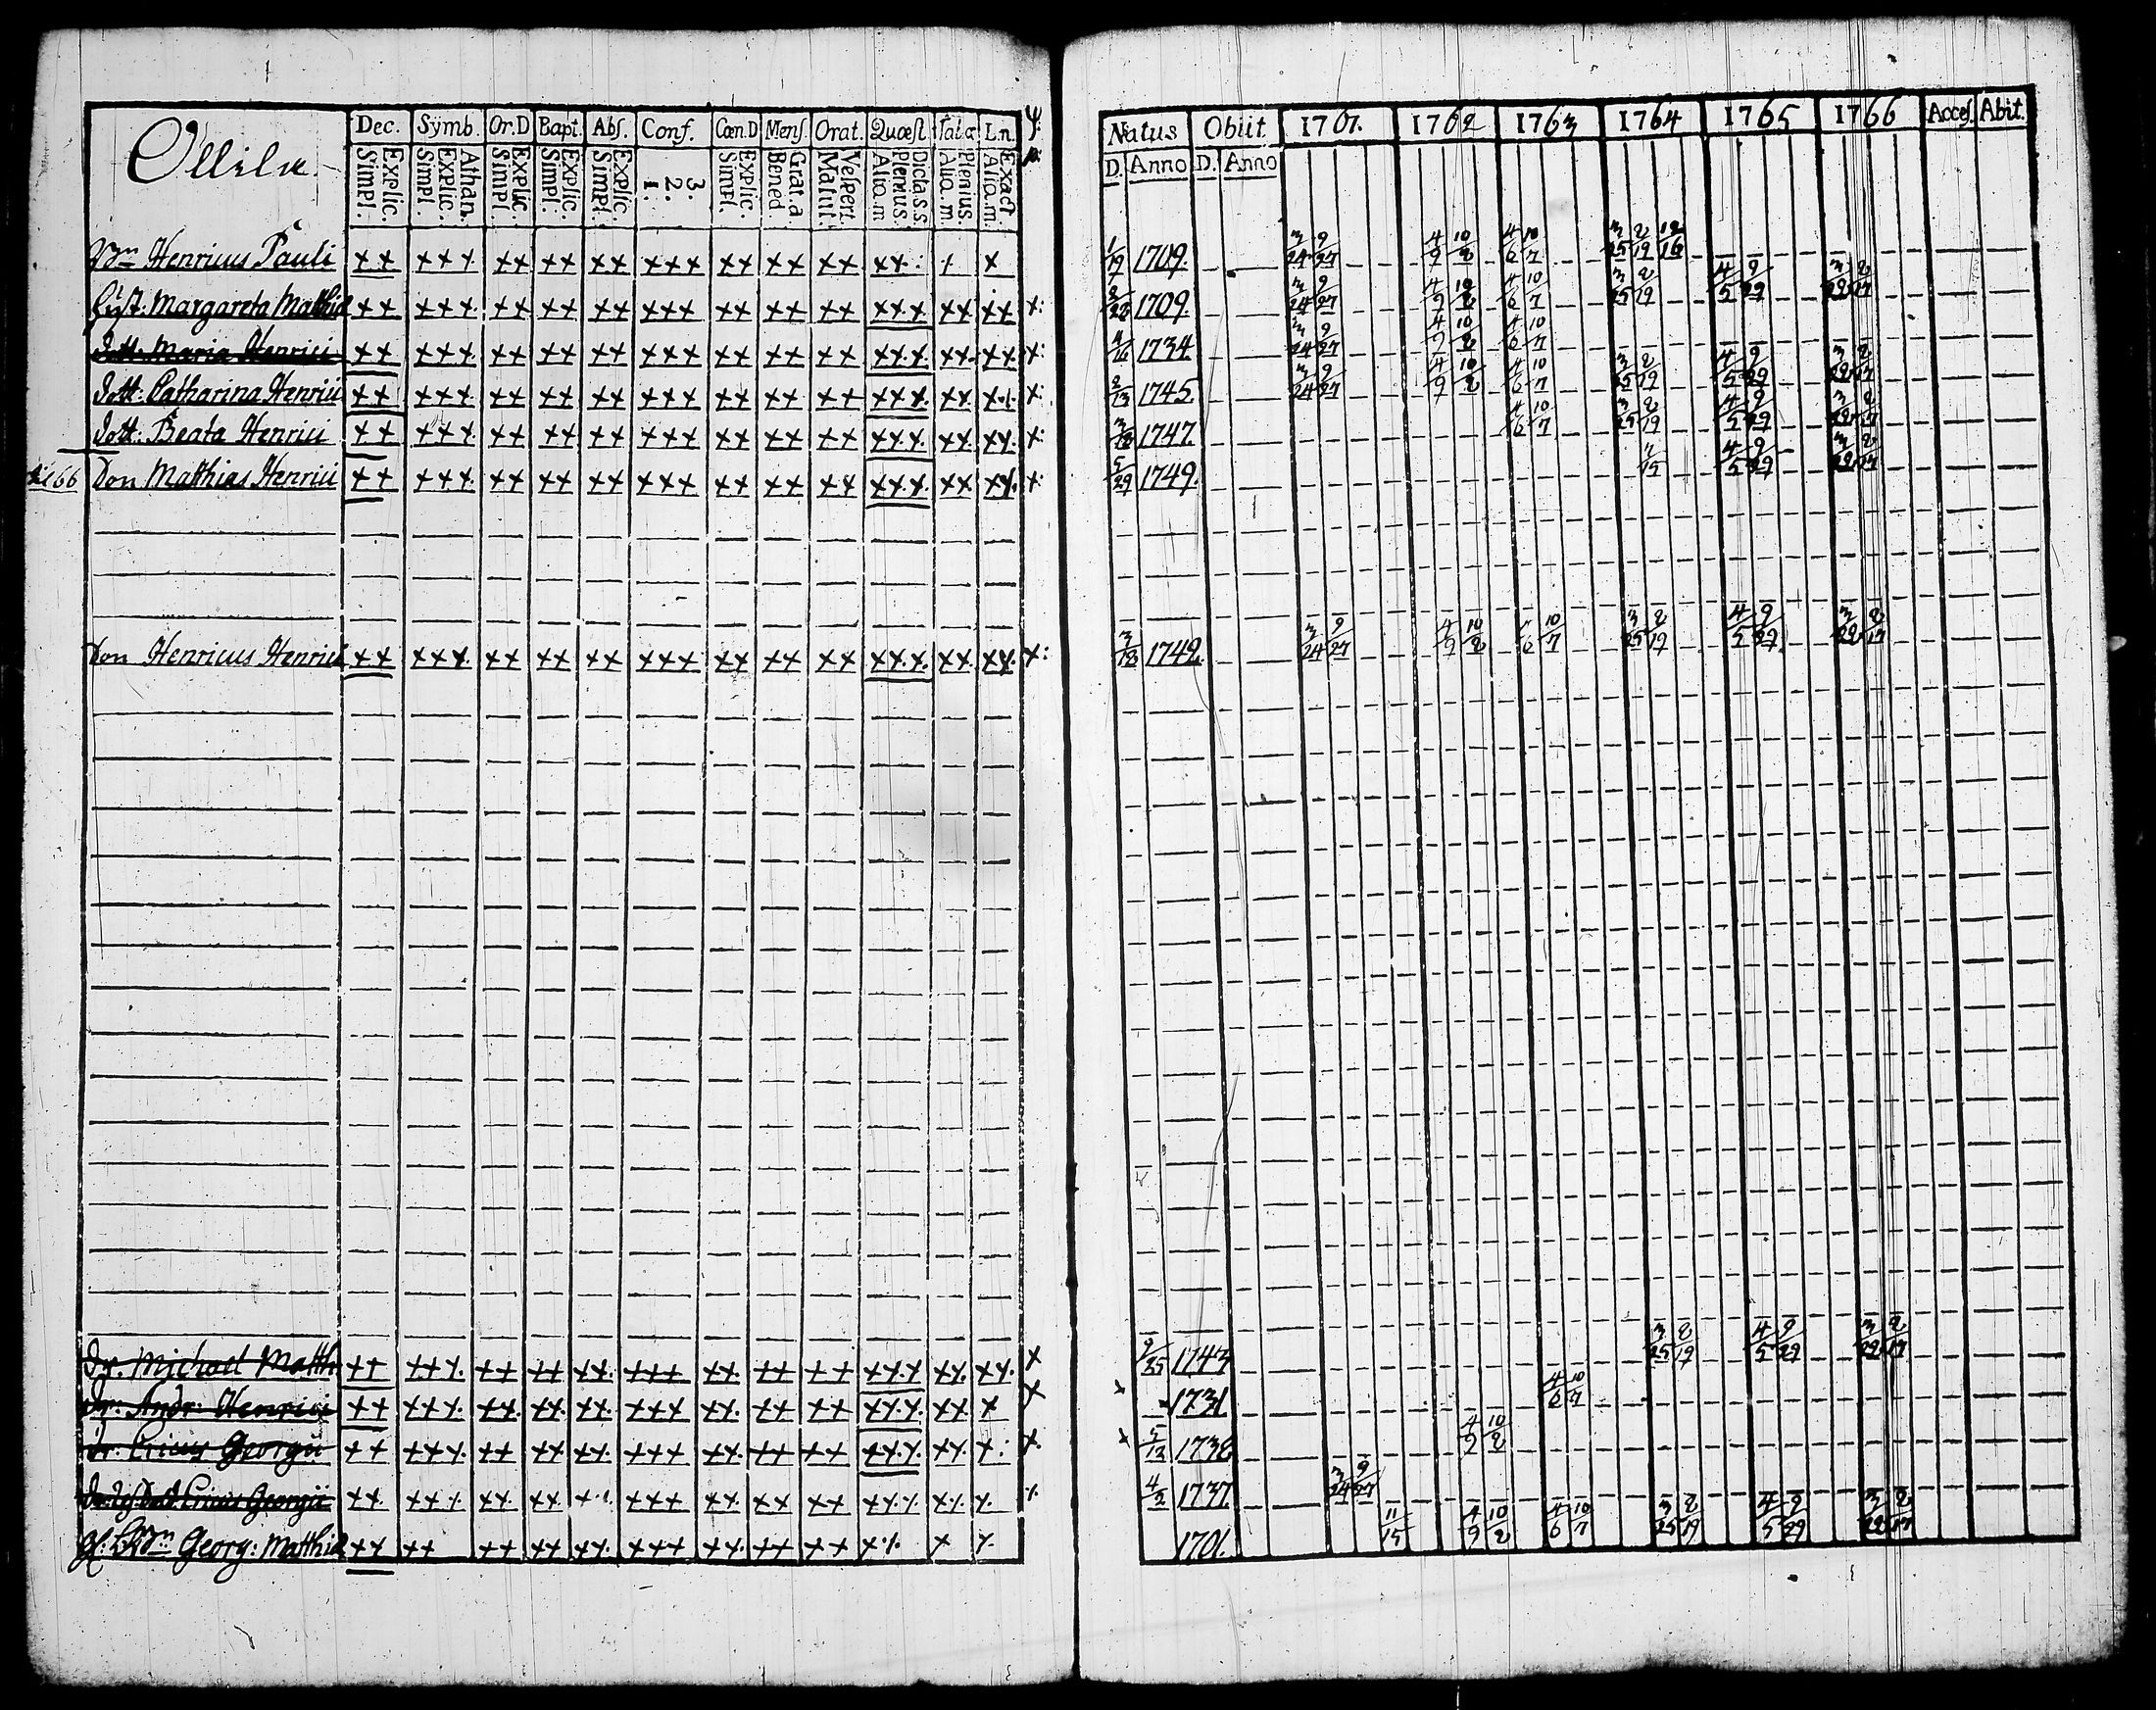 Ollila.
Dec. Symb. Or.D Bapt. Abs. Conf. Cœn.D Mens. Orat. Quæst. Tab.œ L.n. ψ:
Explic. Simpl. Athan. Explic. Simpl. Explic. Simpl. Explic. Simpl. Explic. Simpl. 3. 2. 1. Explic. Simpl. Grat.a Bened Vespert. Matut. Dicta s.s. Plenius. Alio.m Plenius. Alio.m. Exact Alio.m.
Natus Obiit 1761. 1762 1763 1764 1765 1766 Acces. Abit.
D. Anno D. Anno
Henricus Pauli ++ +++ ++ ++ ++ +++ ++ ++ ++ ++: + + 1/19 1709. 3/24 9/27 4/9 10/2 4/6 10/7 3/25 2/19 12/16
Hust: Margareta Matthiæ ++ +++ ++ ++ ++ +++ ++ ++ ++ +++ ++ ++ +: 1709. 3/24 9/27 4/9 10/2 4/6 10/7 3/25 2/19 4/5 9/29 3/22 2/17
dott: Maria Henrici ++ +++ ++ ++ ++ +++ ++ ++ ++ +++ ++ ++ +: 4/16 1734 3/24 9/27 4/9 10/2 4/6 10/7
dott: Catharina Henrici ++ +++ ++ ++ ++ +++ ++ ++ ++ +++ ++ ++ +: 2/13 1745. 3/24 9/27 4/9 10/2 4/6 10/7 3/25 2/19 4/5 9/29 3/22 2/17
dott: Beata Henrici ++ +++ ++ ++ ++ +++ ++ ++ ++ +++ ++ ++ +: 1747. 4/6 10/7 3/25 2/19 4/5 9/29 3/22 2/17
66 Son Matthias Henrici ++ +++ ++ ++ ++ +++ ++ ++ ++ +++ ++ ++ +: 5/29 1749. 2/19 4/5 9/29 3/22 2/17
Son Henricus Henrici ++ +++ ++ ++ ++ +++ ++ ++ ++ +++ ++ ++ +: 3/18 1742. 3/24 9/27 4/9 10/2 4/6 10/7 3/25 2/19 4/5 9/29 3/22 2/17
dr. Michael Matth. ++ +++ ++ ++ ++ +++ ++ ++ ++ +++ ++ ++ + 1743 3/25 2/19 4/5 9/29 3/22 2/17
dr: Andr: Henrici ++ +++ ++ ++ ++ +++ ++ ++ ++ +++ ++ + + + 1731 4/6 10/7
dr: Ericus Georgii ++ +++ ++ ++ ++ +++ ++ ++ ++ +++ ++ +: + + 5/13 1738 4/9 10/2
Ericus Georgii ++ +++ ++ ++ ++ +++ ++ ++ ++ +++ ++ + + 1737. 3/24 9/27
Georg: Matthiæ ++ ++ ++ ++ ++ +++ ++ ++ ++ ++ + + 1701. 11/15 4/9 10/2 4/6 10/7 3/25 2/19 4/5 9/29 3/22 2/17